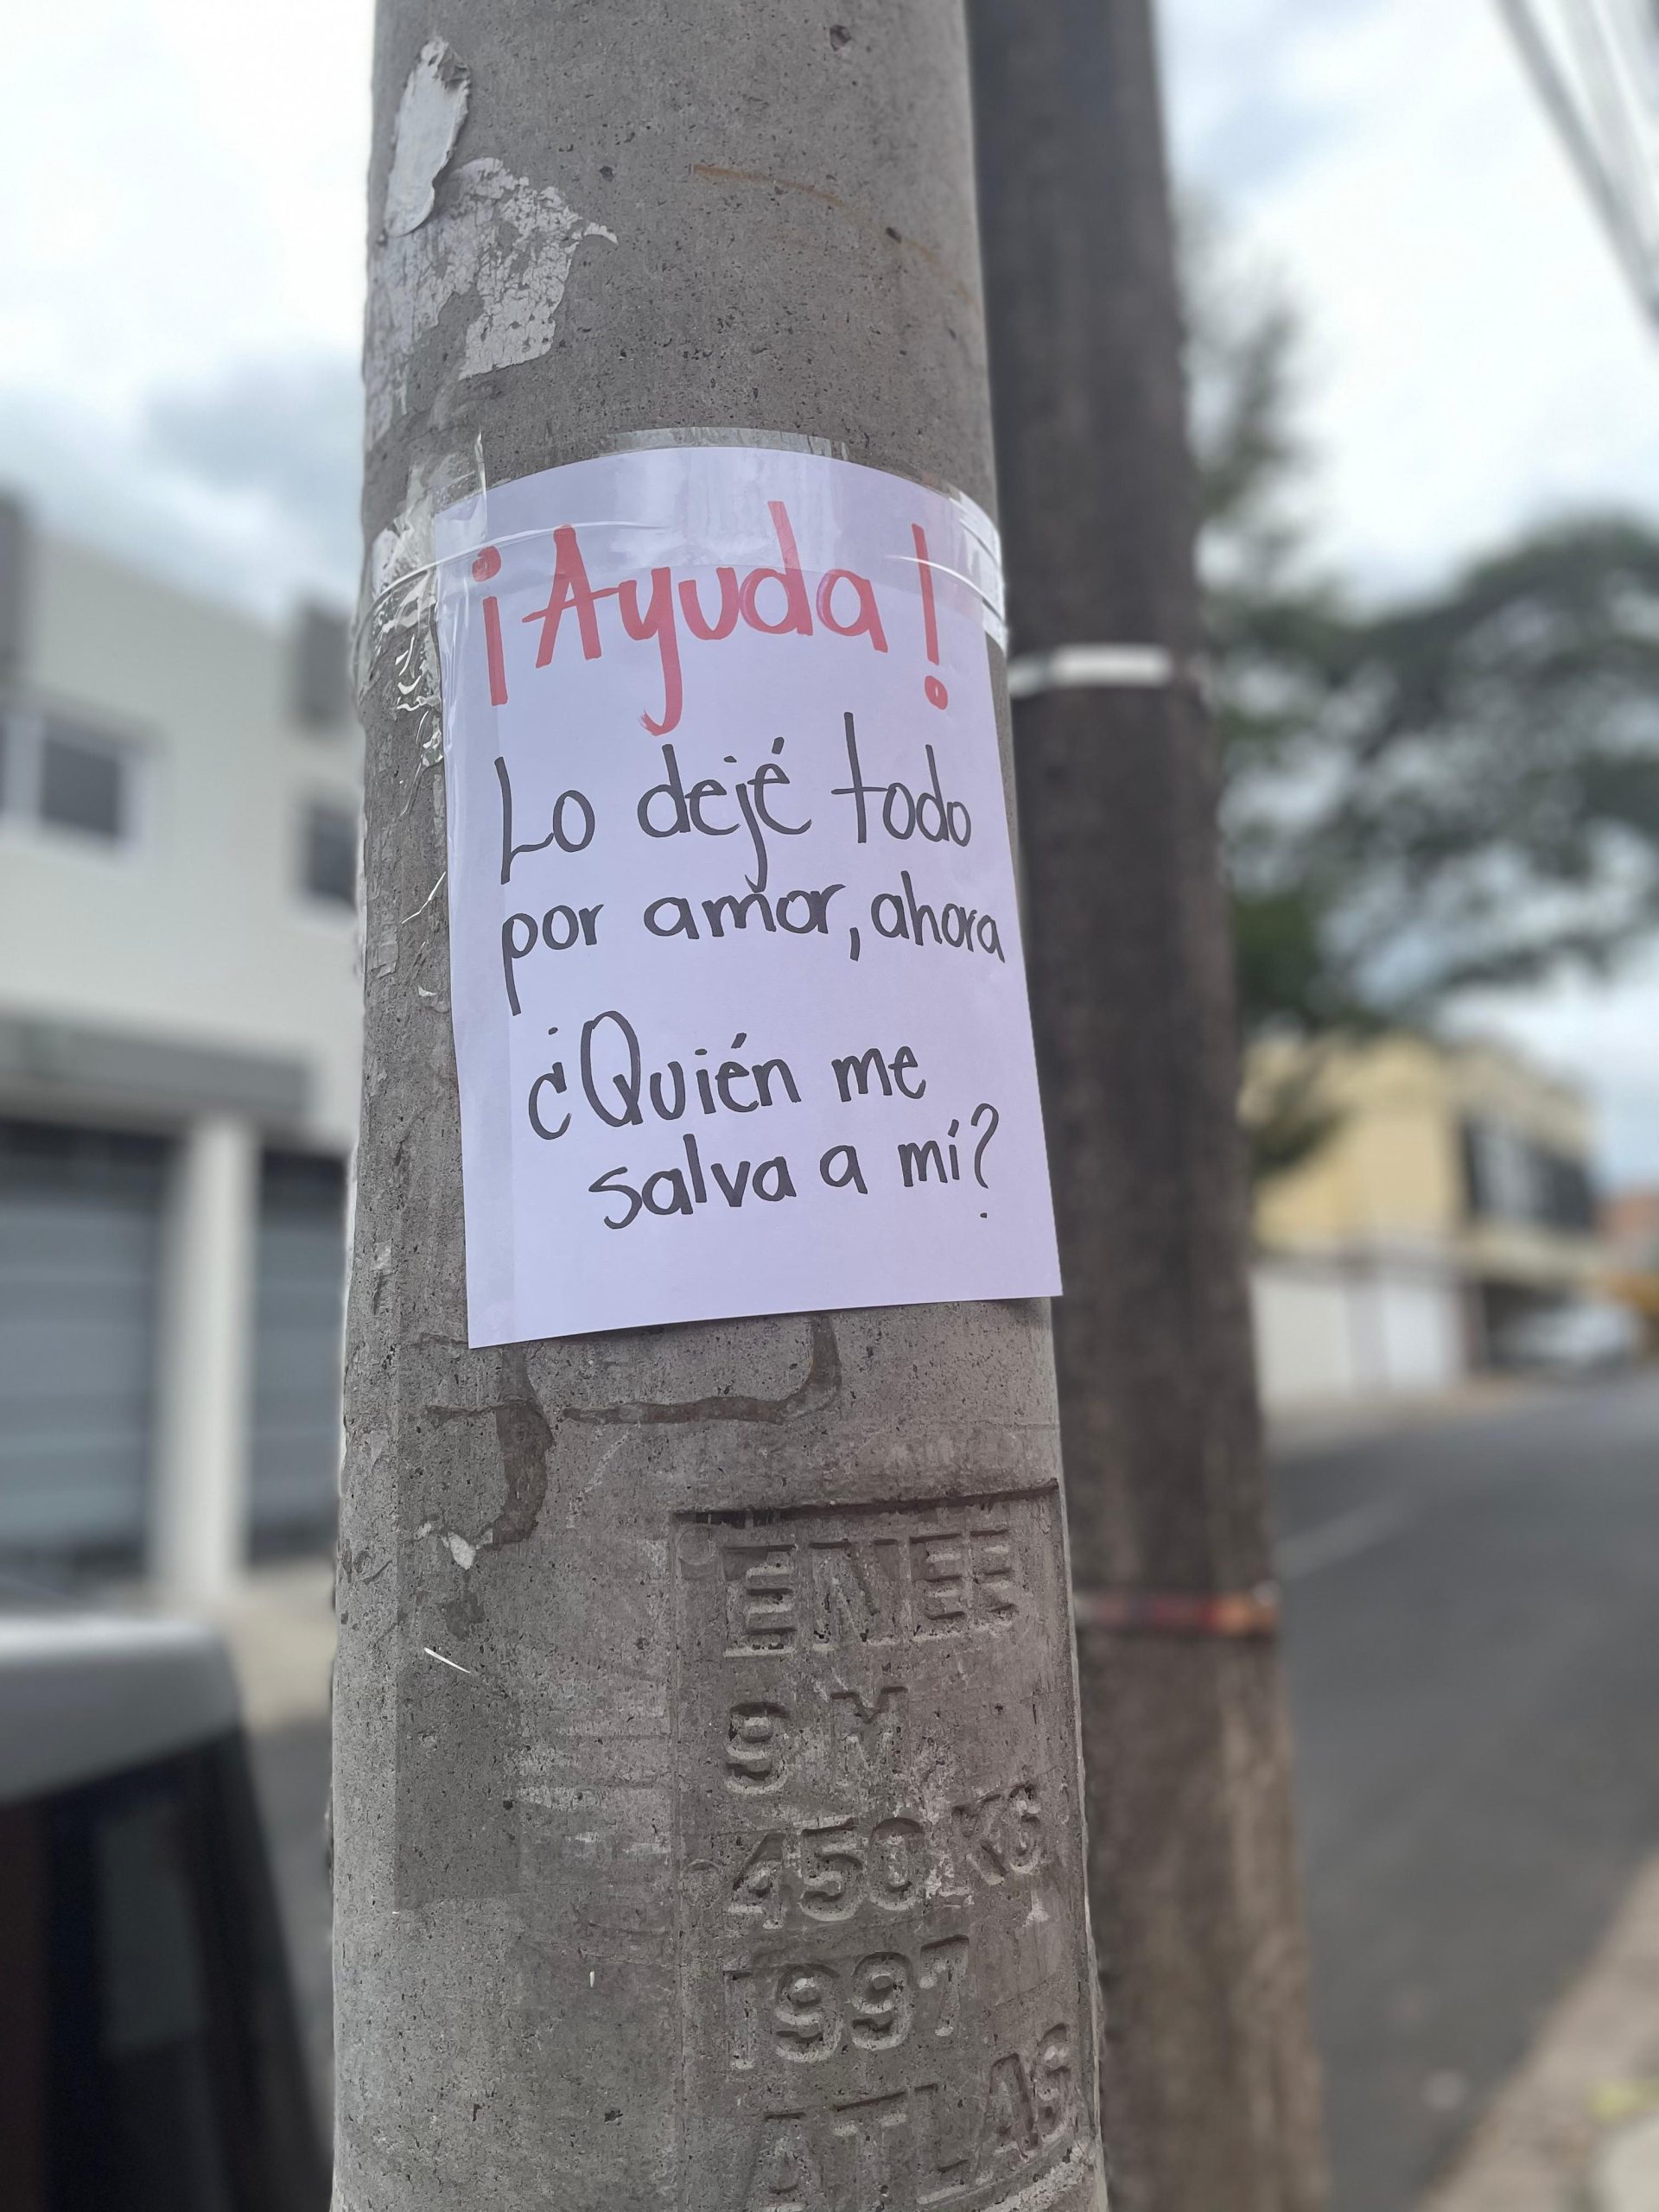 ¡Ayuda!
Lo dejé todo
por amor, ahora
¿Quién me
salva a mí?
ENEE
9 M
450 KG
1997
ATLAS